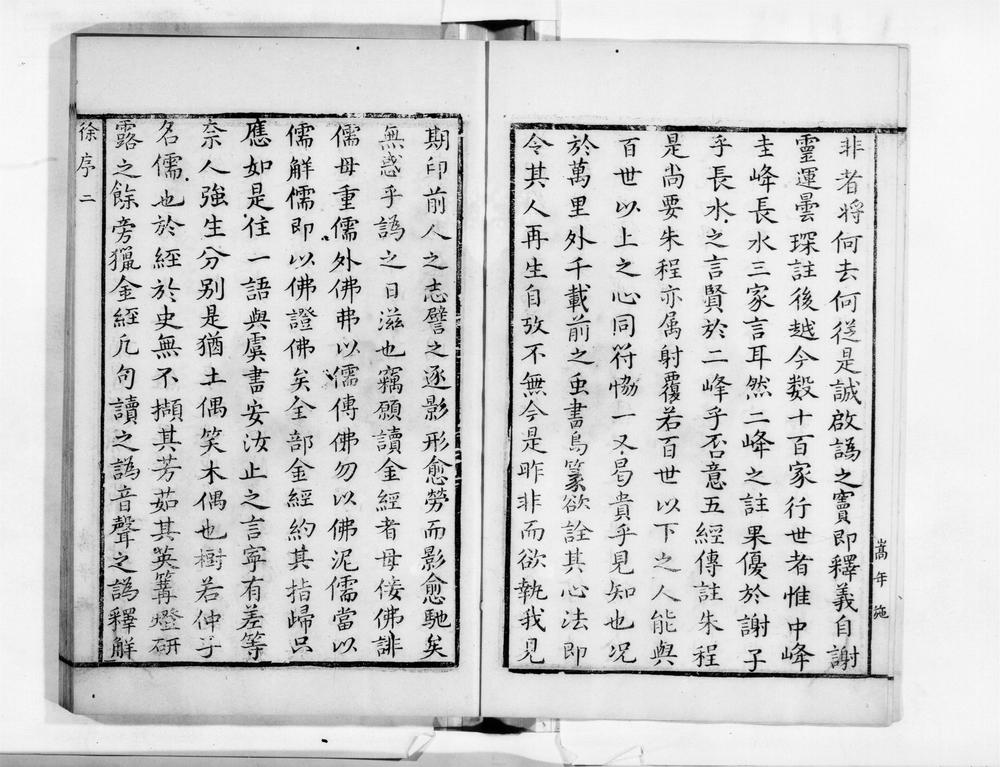 非者將何去何從是誠啟譌之竇即釋義自謝
靈運曇琛註後越今數十百家行世者惟中峰
圭峰長水三家言耳然二峰之註果優於謝子
乎長水之言賢於二峰乎否意五經傳註朱程
是尚要朱程亦属射覆若百世以下之人能與
百世以上之心同符恊一又曷貴乎見知也况
於萬里外千載前之虫書鳥篆欲詮其心法即
令其人再生自攷不無今是昨非而欲執我見
嵩年施
期印前人之志譬之逐影形愈勞而影愈馳矣
無惑乎譌之日滋也竊願讀金經者毋佞佛誹
儒毋重儒外佛弗以儒傳佛勿以佛泥儒當以
儒解儒即以佛證佛矣全部金經約其指歸只
應如是住一語與虞書安汝止之言寧有差等
奈人強生分别是猶土偶笑木偶也樹若仲子
名儒也於經於史無不擷其芳茹其英篝燈研
露之餘旁獵金經凡句讀之譌音聲之譌釋解
徐序二